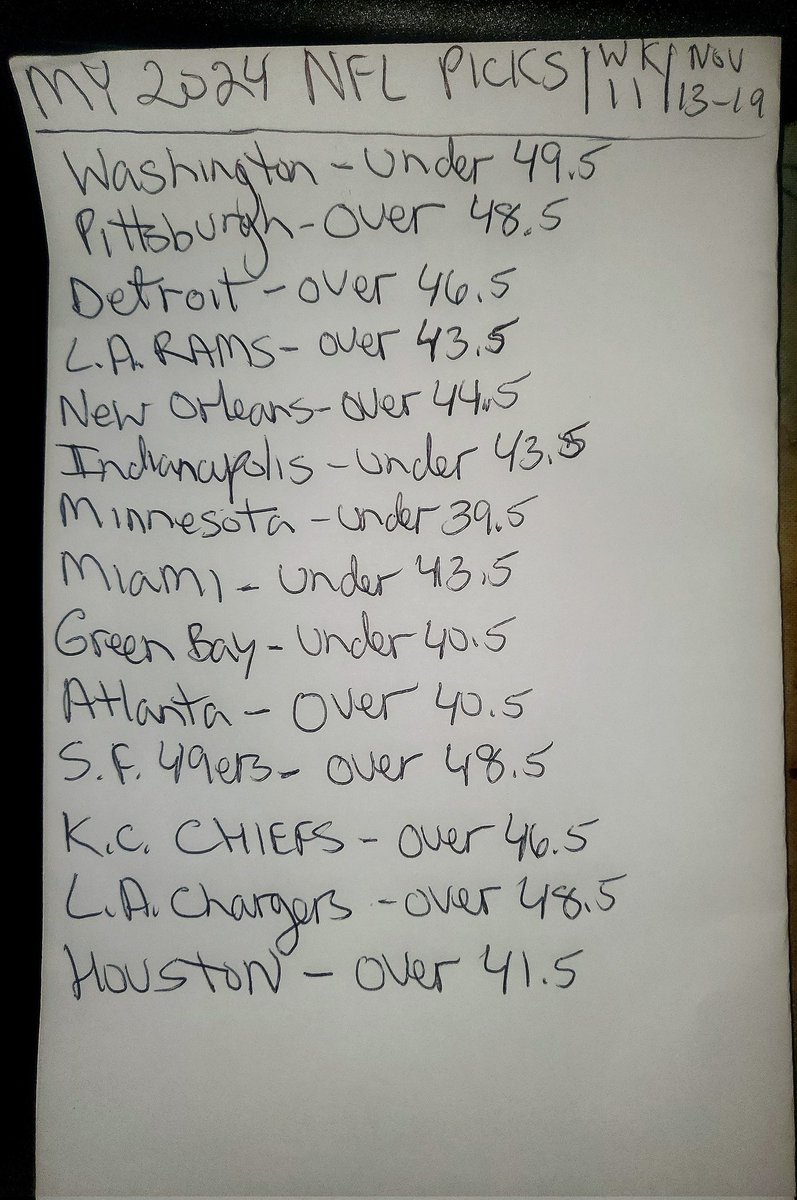 MY 2024 NFL PICKS | WK 11 | NOV 13-19
Washington - Under 49.5
Pittsburgh - Over 48.5
Detroit - over 46.5
L.A. RAMS - over 43.5
New Orleans - over 44.5
Indianapolis - under 43.5
Minnesota - under 39.5
Miami - under 43.5
Green Bay - under 40.5
Atlanta - Over 40.5
S.F. 49ers - over 48.5
K.C. CHIEFS - over 46.5
L.A. Chargers - over 48.5
HOUSTON - over 41.5